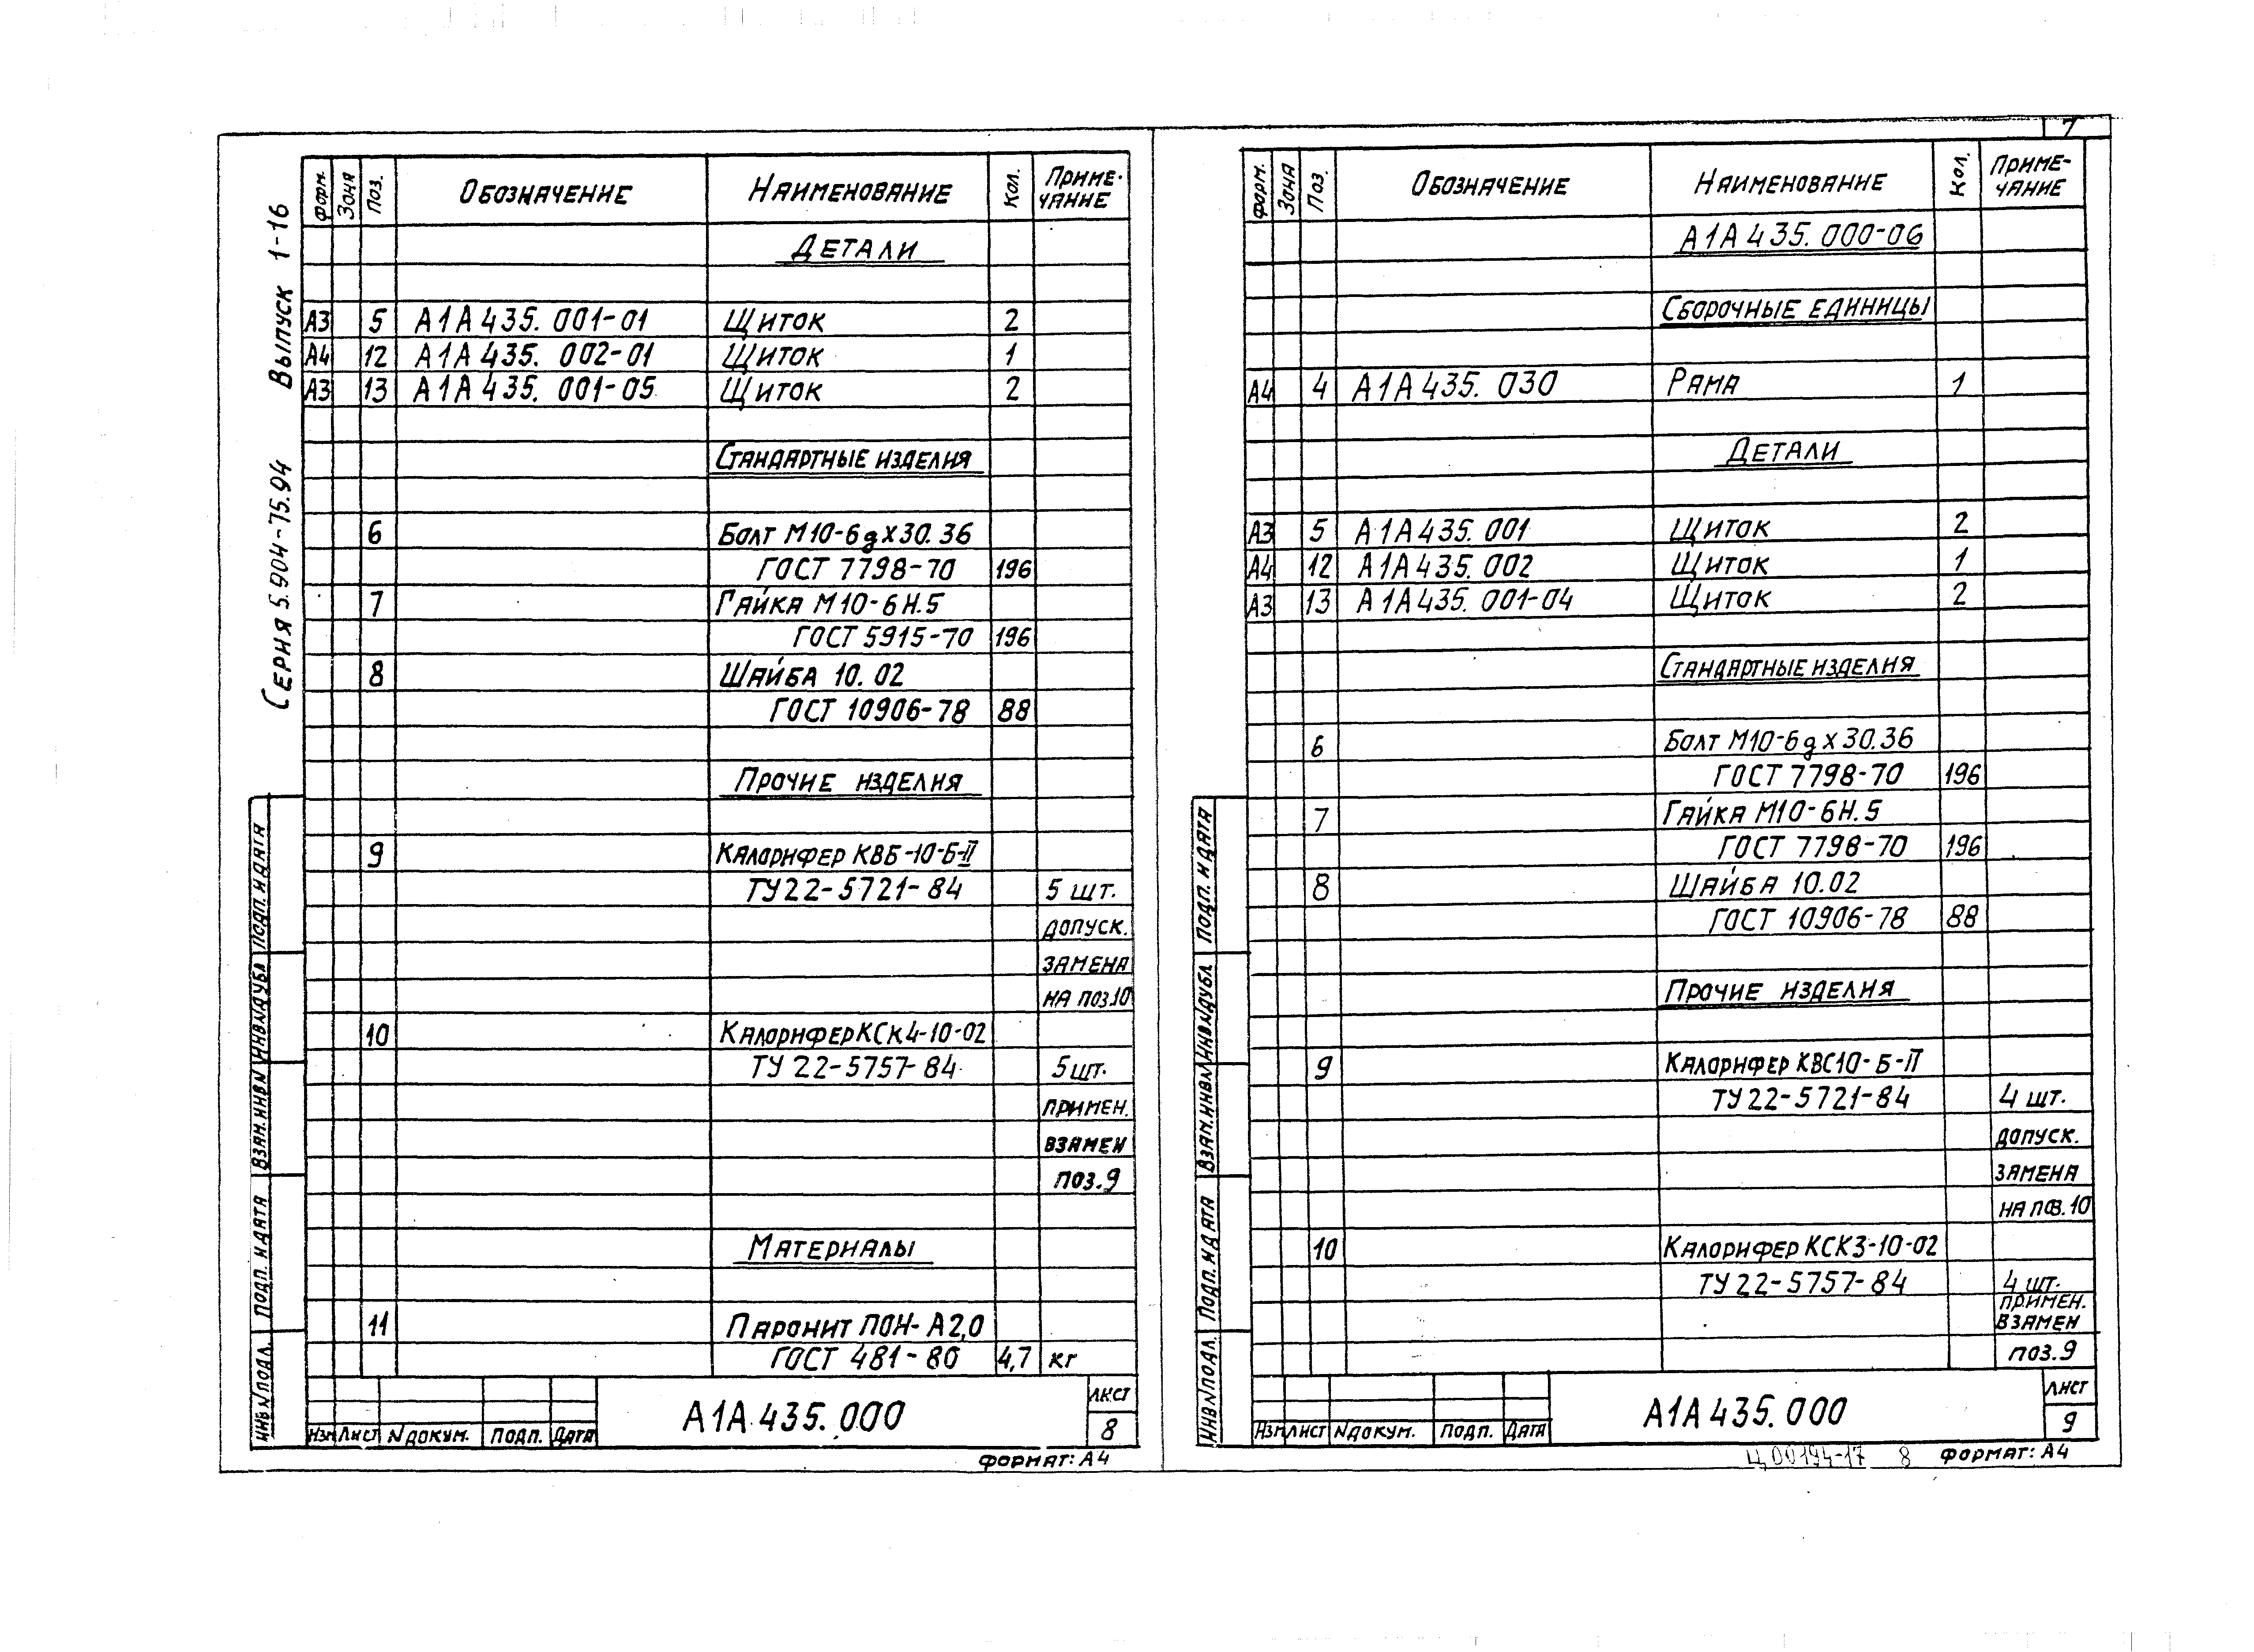 Серия 5.904-75.94 Выпуск 1-16
Форм. Зона Поз. Обозначение Наименование Кол. Примечание
Детали
А3 5 А1А435.001-01 Щиток 2
А4 12 А1А435.002-01 Щиток 1
А3 13 А1А435.001-05 Щиток 2
Стандартные изделия
6 Болт М10-6gх30.36
ГОСТ 7798-70 196
7 Гайка М10-6Н.5
ГОСТ 5915-70 196
8 Шайба 10.02
ГОСТ 10906-78 88
Прочие изделия
9 Калорифер КВБ-10-Б-II
ТУ22-5721-84 5 шт.
допуск.
замена
на поз.10
10 Калорифер КСк4-10-02
ТУ 22-5757-84 5 шт.
примен.
взамен
поз.9
Материалы
11 Паронит ПОН-А2,0
ГОСТ 481-80 4,7 кг
Инв№подл. Подп. и дата Взам.инв№ Инв№дубл Подп. и дата
Изм Лист №докум. Подп. Дата
А1А435.000
Лист
8
Формат: А4
7
Форм. Зона Поз. Обозначение Наименование Кол. Примечание
А1А435.000-06
Сборочные единицы
А4 4 А1А435.030 Рама 1
Детали
А3 5 А1А435.001 Щиток 2
А4 12 А1А435.002 Щиток 1
А3 13 А1А435.001-04 Щиток 2
Стандартные изделия
6 Болт М10-6gх30.36
ГОСТ 7798-70 196
7 Гайка М10-6Н.5
ГОСТ 7798-70 196
8 Шайба 10.02
ГОСТ 10906-78 88
Прочие изделия
9 Калорифер КВС10-Б-П
ТУ22-5721-84 4 шт.
допуск.
замена
на поз.10
10 Калорифер КСК3-10-02
ТУ22-5757-84 4 шт.
примен.
взамен
поз.9
Инв№подл. Подп. и дата Взам.инв№ Инв№дубл Подп. и дата
Изм Лист №докум. Подп. Дата
А1А435.000
Лист
9
Ц00194-17 8 Формат: А4